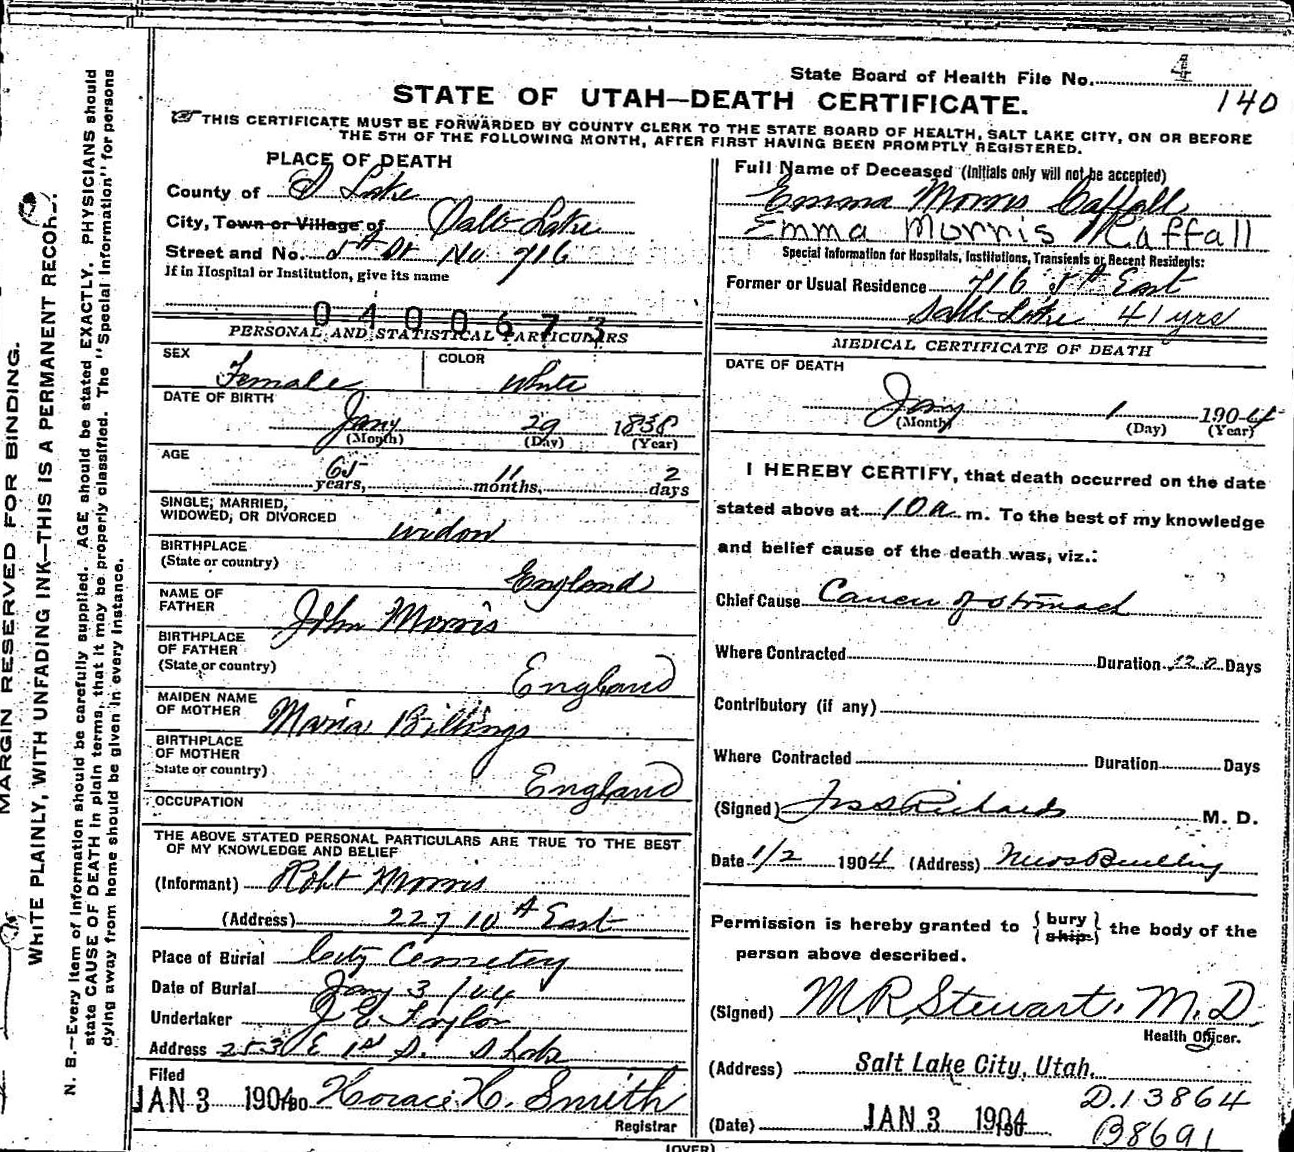 State Board of Health File No. 4
140
STATE OF UTAH—DEATH CERTIFICATE.
THIS CERTIFICATE MUST BE FORWARDED BY COUNTY CLERK TO THE STATE BOARD OF HEALTH, SALT LAKE CITY, ON OR BEFORE
THE 5TH OF THE FOLLOWING MONTH, AFTER FIRST HAVING BEEN PROMPTLY REGISTERED.
PLACE OF DEATH
County of S Lake
City, Town or Village of Salt Lake
Street and No. St No 716
If in Hospital or Institution, give its name
0400673
PERSONAL AND STATISTICAL PARTICULARS
SEX
Female
COLOR
White
DATE OF BIRTH
Jany 29 1838
(Month) (Day) (Year)
AGE
65 years, 11 months, 2 days
SINGLE, MARRIED,
WIDOWED, OR DIVORCED
widow
BIRTHPLACE
(State or country)
England
NAME OF
FATHER
John Morris
BIRTHPLACE
OF FATHER
(State or country)
England
MAIDEN NAME
OF MOTHER
Maria Billings
BIRTHPLACE
OF MOTHER
State or country)
England
OCCUPATION
THE ABOVE STATED PERSONAL PARTICULARS ARE TRUE TO THE BEST
OF MY KNOWLEDGE AND BELIEF
(Informant) Robt Morris
(Address) 227 10th East
Place of Burial City Cemetery
Date of Burial Jany 3/04
Undertaker J E Taylor
Address 253 E 1st S. S Lake
Filed
JAN 3 1904 190 Horace H. Smith
Registrar
Full Name of Deceased (Initials only will not be accepted)
Emma Morris Caffall
Emma Morris Caffall
Special Information for Hospitals, Institutions, Transients or Recent Residents:
Former or Usual Residence 716 East
Salt Lake 41 yrs
MEDICAL CERTIFICATE OF DEATH
DATE OF DEATH
Jany 1 1904
(Month) (Day) (Year)
I HEREBY CERTIFY, that death occurred on the date
stated above at 10 a m. To the best of my knowledge
and belief cause of the death was, viz.:
Chief Cause Cancer of Stomach
Where Contracted Duration 120 Days
Contributory (if any)
Where Contracted Duration Days
(Signed) Richards M. D.
Date 1/2 1904 (Address) News Building
Permission is hereby granted to { bury } the body of the
{ ship }
person above described.
(Signed) M. R. Stewart, M.D.
Health Officer.
(Address) Salt Lake City, Utah.
D.13864
(Date) JAN 3 1904 190
B8691
(OVER)
MARGIN RESERVED FOR BINDING.
WHITE PLAINLY, WITH UNFADING INK—THIS IS A PERMANENT RECORD.
N. B.—Every item of information should be carefully supplied. AGE should be stated EXACTLY. PHYSICIANS should
state CAUSE OF DEATH in plain terms, that it may be properly classified. The "Special Information" for persons
dying away from home should be given in every instance.